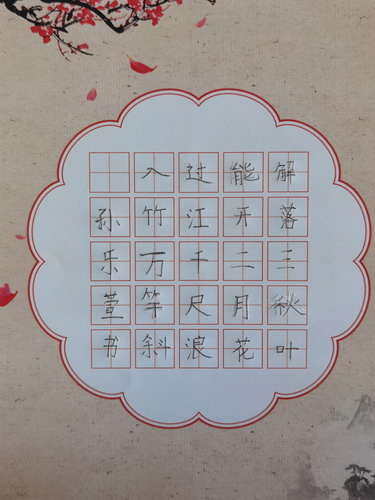 解落三秋叶
能开二月花
过江千尺浪
入竹万竿斜
孙乐萱书